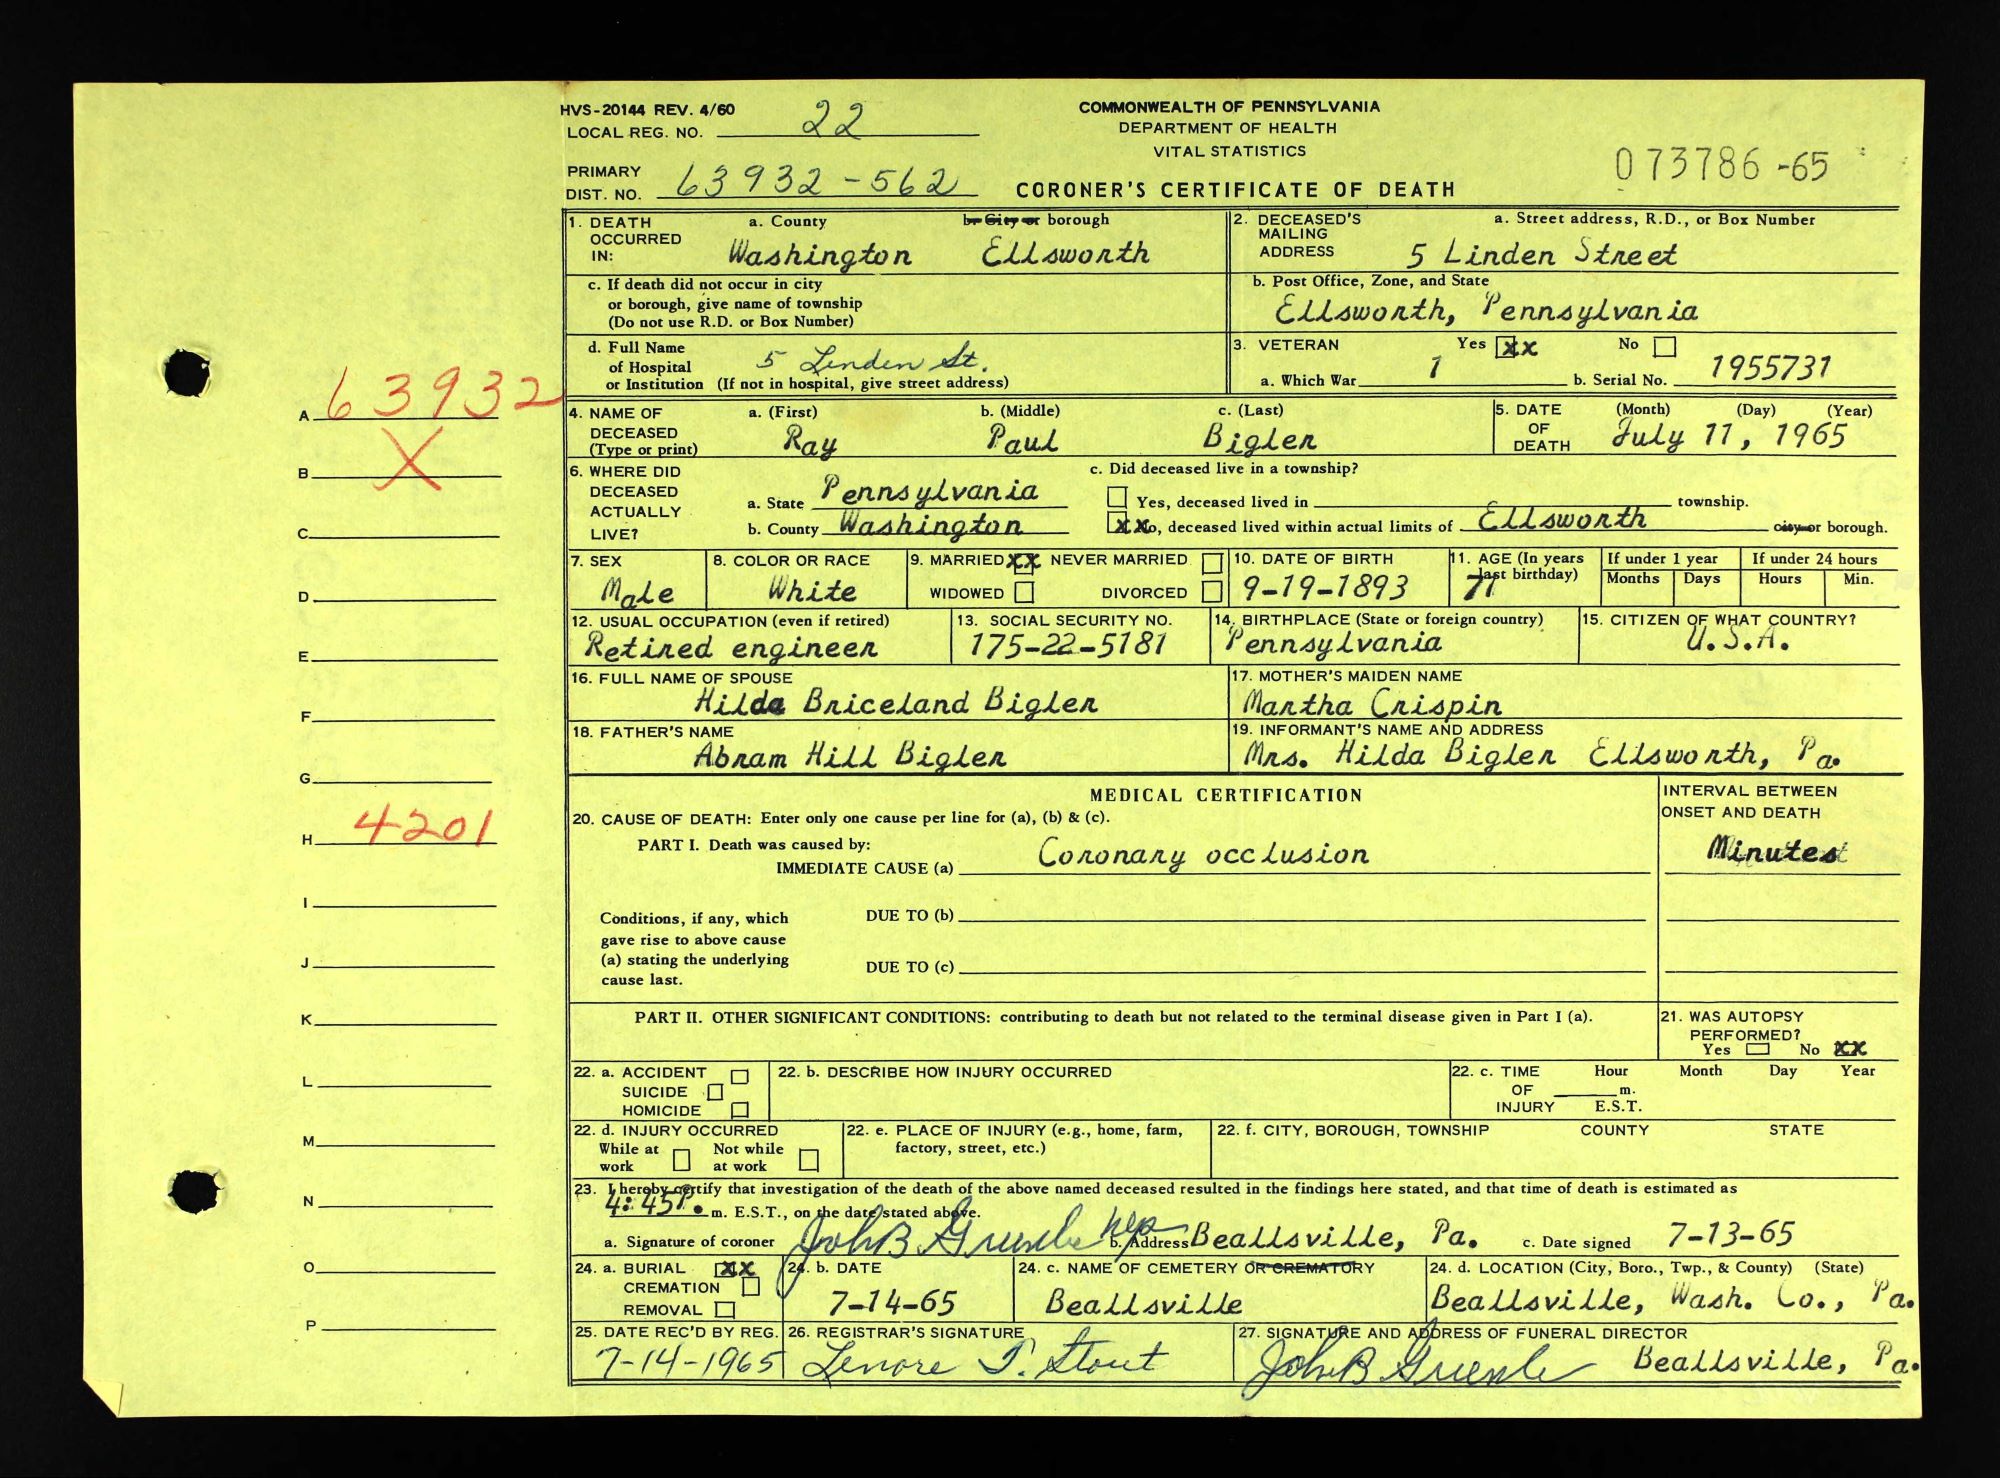 HVS-20144 REV. 4/60
LOCAL REG. NO. 22
COMMONWEALTH OF PENNSYLVANIA
DEPARTMENT OF HEALTH
VITAL STATISTICS
PRIMARY
DIST. NO. 63932-562
CORONER'S CERTIFICATE OF DEATH
073786-65
1. DEATH OCCURRED IN:
a. County
Washington
b. City or borough
Ellsworth
2. DECEASED'S MAILING ADDRESS
a. Street address, R.D., or Box Number
5 Linden Street
c. If death did not occur in city
or borough, give name of township
(Do not use R.D. or Box Number)
b. Post Office, Zone, and State
Ellsworth, Pennsylvania
d. Full Name
of Hospital
or Institution (If not in hospital, give street address)
5 Linden St.
3. VETERAN Yes xx No
a. Which War 1 b. Serial No. 1955731
A 63932
B X
C
D
E
F
G
H 4201
I
J
K
L
M
N
O
P
4. NAME OF
DECEASED
(Type or print)
a. (First) b. (Middle) c. (Last)
Ray Paul Bigler
5. DATE OF DEATH
(Month) (Day) (Year)
July 11, 1965
6. WHERE DID
DECEASED
ACTUALLY
LIVE?
a. State Pennsylvania
b. County Washington
c. Did deceased live in a township?
Yes, deceased lived in township.
xx No, deceased lived within actual limits of Ellsworth city or borough.
7. SEX
Male
8. COLOR OR RACE
White
9. MARRIED xx NEVER MARRIED
WIDOWED DIVORCED
10. DATE OF BIRTH
9-19-1893
11. AGE (In years
last birthday)
71
If under 1 year
Months Days
If under 24 hours
Hours Min.
12. USUAL OCCUPATION (even if retired)
Retired engineer
13. SOCIAL SECURITY NO.
175-22-5181
14. BIRTHPLACE (State or foreign country)
Pennsylvania
15. CITIZEN OF WHAT COUNTRY?
U.S.A.
16. FULL NAME OF SPOUSE
Hilda Briceland Bigler
17. MOTHER'S MAIDEN NAME
Martha Crispin
18. FATHER'S NAME
Abram Hill Bigler
19. INFORMANT'S NAME AND ADDRESS
Mrs. Hilda Bigler Ellsworth, Pa.
MEDICAL CERTIFICATION
INTERVAL BETWEEN
ONSET AND DEATH
20. CAUSE OF DEATH: Enter only one cause per line for (a), (b) & (c).
PART I. Death was caused by:
IMMEDIATE CAUSE (a) Coronary occlusion
Minutes
Conditions, if any, which
gave rise to above cause
(a) stating the underlying
cause last.
DUE TO (b)
DUE TO (c)
PART II. OTHER SIGNIFICANT CONDITIONS: contributing to death but not related to the terminal disease given in Part I (a).
21. WAS AUTOPSY
PERFORMED?
Yes No xx
22. a. ACCIDENT
SUICIDE
HOMICIDE
22. b. DESCRIBE HOW INJURY OCCURRED
22. c. TIME OF INJURY
Hour Month Day Year
m.
E.S.T.
22. d. INJURY OCCURRED
While at work Not while at work
22. e. PLACE OF INJURY (e.g., home, farm,
factory, street, etc.)
22. f. CITY, BOROUGH, TOWNSHIP COUNTY STATE
23. I hereby certify that investigation of the death of the above named deceased resulted in the findings here stated, and that time of death is estimated as
4:45P. m. E.S.T., on the date stated above.
a. Signature of coroner John B
b. Address Beallsville, Pa.
c. Date signed 7-13-65
24. a. BURIAL xx
CREMATION
REMOVAL
24. b. DATE
7-14-65
24. c. NAME OF CEMETERY OR CREMATORY
Beallsville
24. d. LOCATION (City, Boro., Twp., & County) (State)
Beallsville, Wash. Co., Pa.
25. DATE REC'D BY REG.
7-14-1965
26. REGISTRAR'S SIGNATURE
Lenore T. Stout
27. SIGNATURE AND ADDRESS OF FUNERAL DIRECTOR
John B Beallsville, Pa.